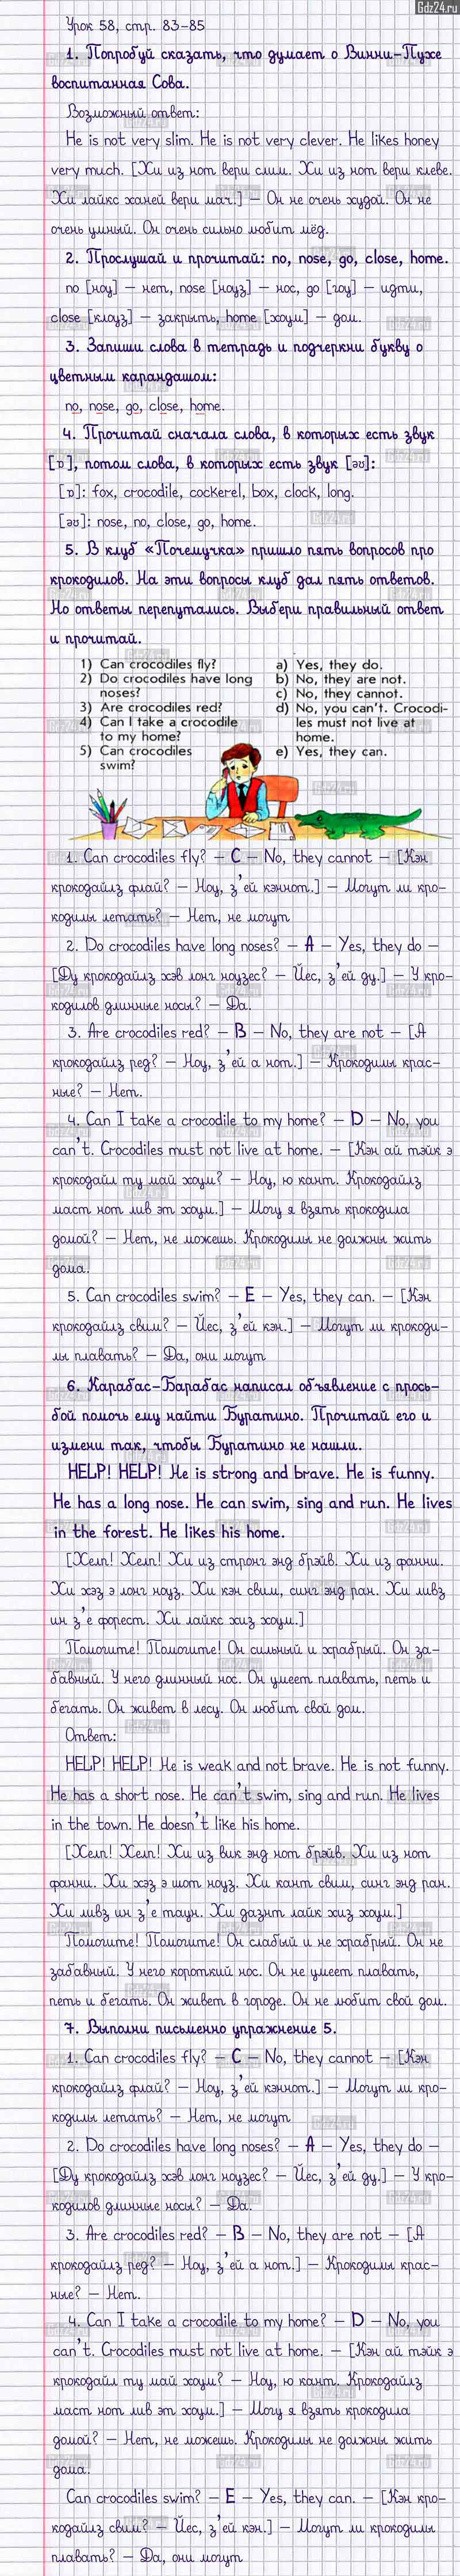 Gdz24.ru
Урок 58, стр. 83-85
1. Попробуй сказать, что думает о Винни-Пухе
воспитанная Сова.
Возможный ответ:
He is not very slim. He is not very clever. He likes honey
very much. [Хи из нот вери слим. Хи из нот вери клеве.
Хи лайкс ханей вери мач.] – Он не очень худой. Он не
очень умный. Он очень сильно любит мёд.
2. Прослушай и прочитай: no, nose, go, close, home.
no [ноу] – нет, nose [ноуз] – нос, go [гоу] – идти,
close [клоуз] – закрыть, home [хоум] – дом.
3. Запиши слова в тетрадь и подчеркни букву о
цветным карандашом:
no, nose, go, close, home.
4. Прочитай сначала слова, в которых есть звук
[ɒ], потом слова, в которых есть звук [əʊ]:
[ɒ]: fox, crocodile, cockerel, box, clock, long.
[əʊ]: nose, no, close, go, home.
5. В клуб «Почемучка» пришло пять вопросов про
крокодилов. На эти вопросы клуб дал пять ответов.
Но ответы перепутались. Выбери правильный ответ
и прочитай.
1) Can crocodiles fly?
2) Do crocodiles have long
noses?
3) Are crocodiles red?
4) Can I take a crocodile
to my home?
5) Can crocodiles
swim?
a) Yes, they do.
b) No, they are not.
c) No, they cannot.
d) No, you can't. Crocodi-
les must not live at
home.
e) Yes, they can.
1. Can crocodiles fly? – C – No, they cannot – [Кэн
крокодайлз флай? – Ноу, з'ей кэннот.] – Могут ли кро-
кодилы летать? – Нет, не могут
2. Do crocodiles have long noses? – A – Yes, they do –
[Ду крокодайлз хэв лонг ноузес? – Йес, з'ей ду.] – У кро-
кодилов длинные носы? – Да.
3. Are crocodiles red? – B – No, they are not – [А
крокодайлз ред? – Ноу, з'ей а нот.] – Крокодилы крас-
ные? – Нет.
4. Can I take a crocodile to my home? – D – No, you
can't. Crocodiles must not live at home. – [Кэн ай тэйк э
крокодайл ту май хоум? – Ноу, ю кант. Крокодайлз
маст нот лив эт хоум.] – Могу я взять крокодила
домой? – Нет, не можешь. Крокодилы не должны жить
дома.
5. Can crocodiles swim? – E – Yes, they can. – [Кэн
крокодайлз свим? – Йес, з'ей кэн.] – Могут ли крокоди-
лы плавать? – Да, они могут
6. Карабас-Барабас написал объявление с прось-
бой помочь ему найти Буратино. Прочитай его и
измени так, чтобы Буратино не нашли.
HELP! HELP! He is strong and brave. He is funny.
He has a long nose. He can swim, sing and run. He lives
in the forest. He likes his home.
[Хелп! Хелп! Хи из стронг энд брэйв. Хи из фанни.
Хи хэз э лонг ноуз. Хи кэн свим, синг энд ран. Хи ливз
ин з'е форест. Хи лайкс хиз хоум.]
Помогите! Помогите! Он сильный и храбрый. Он за-
бавный. У него длинный нос. Он умеет плавать, петь и
бегать. Он живет в лесу. Он любит свой дом.
Ответ:
HELP! HELP! He is weak and not brave. He is not funny.
He has a short nose. He can't swim, sing and run. He lives
in the town. He doesn't like his home.
[Хелп! Хелп! Хи из вик энд нот брэйв. Хи из нот
фанни. Хи хэз э шот ноуз. Хи кант свим, синг энд ран.
Хи ливз ин з'е таун. Хи дазнт лайк хиз хоум.]
Помогите! Помогите! Он слабый и не храбрый. Он не
забавный. У него короткий нос. Он не умеет плавать,
петь и бегать. Он живет в городе. Он не любит свой дом.
7. Выполни письменно упражнение 5.
1. Can crocodiles fly? – C – No, they cannot – [Кэн
крокодайлз флай? – Ноу, з'ей кэннот.] – Могут ли кро-
кодилы летать? – Нет, не могут
2. Do crocodiles have long noses? – A – Yes, they do –
[Ду крокодайлз хэв лонг ноузес? – Йес, з'ей ду.] – У кро-
кодилов длинные носы? – Да.
3. Are crocodiles red? – B – No, they are not – [А
крокодайлз ред? – Ноу, з'ей а нот.] – Крокодилы крас-
ные? – Нет.
4. Can I take a crocodile to my home? – D – No, you
can't. Crocodiles must not live at home. – [Кэн ай тэйк э
крокодайл ту май хоум? – Ноу, ю кант. Крокодайлз
маст нот лив эт хоум.] – Могу я взять крокодила
домой? – Нет, не можешь. Крокодилы не должны жить
дома.
Can crocodiles swim? – E – Yes, they can. – [Кэн кро-
кодайлз свим? – Йес, з'ей кэн.] – Могут ли крокодилы
плавать? – Да, они могут